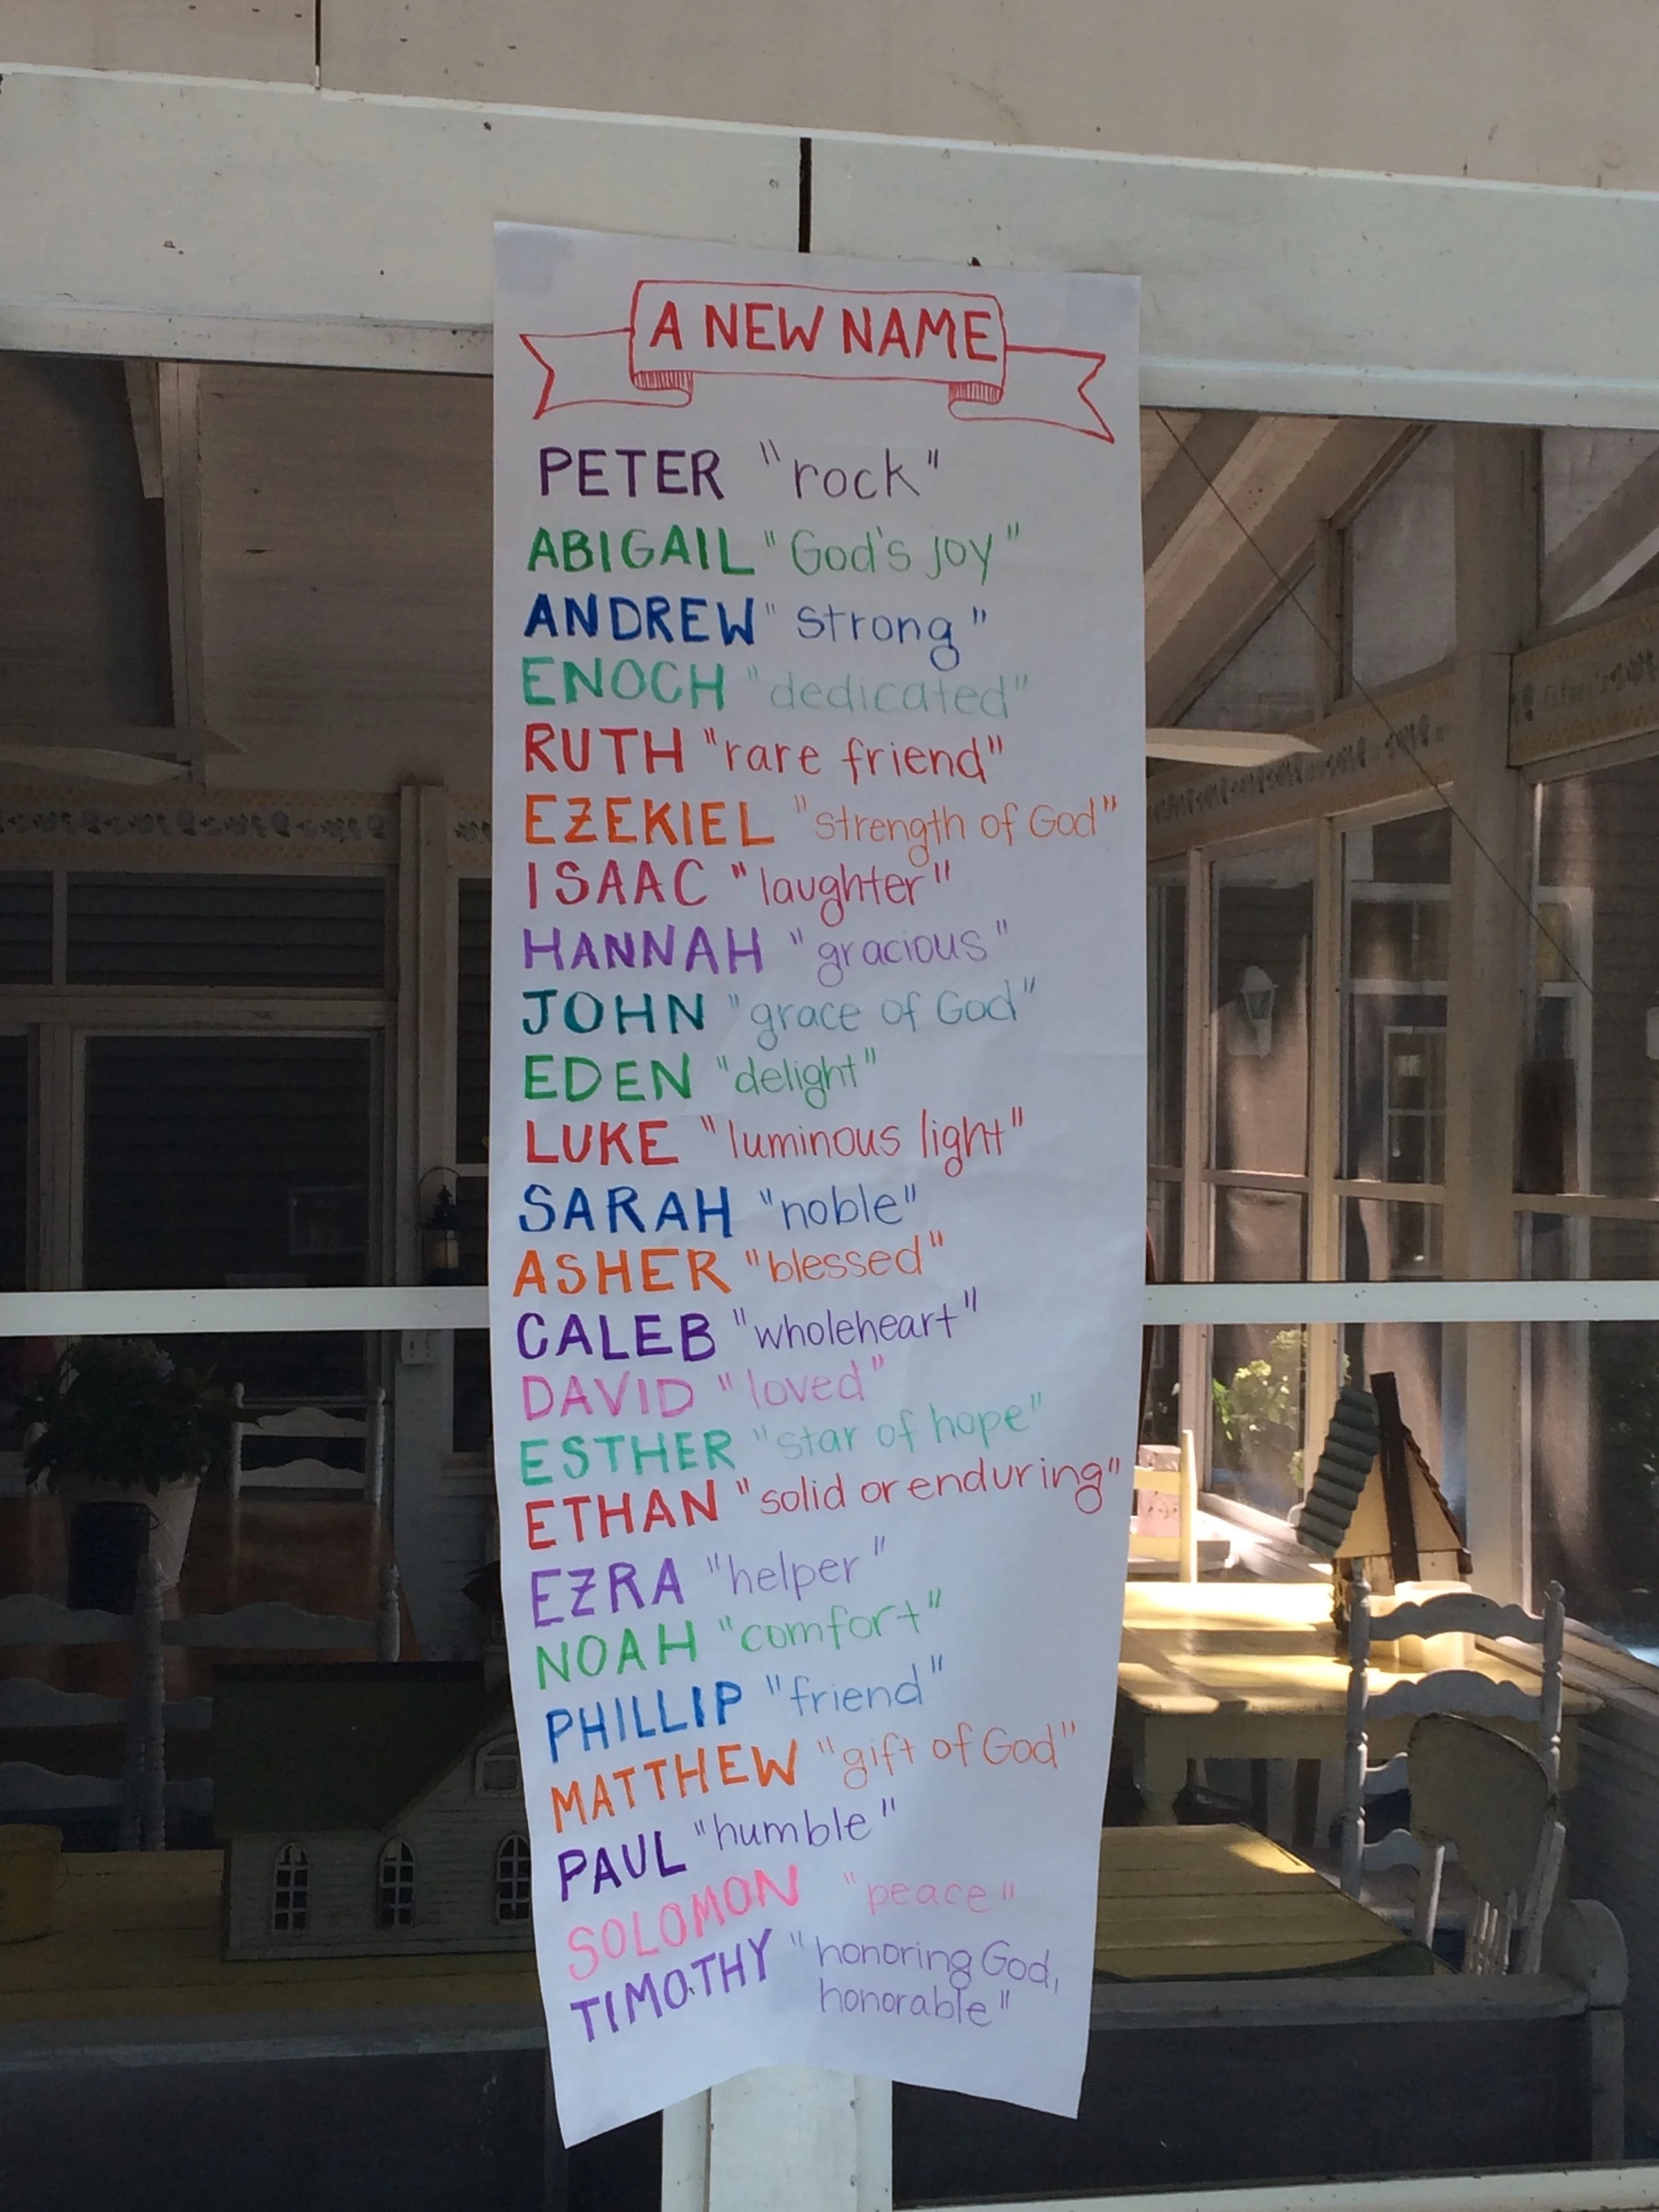 A NEW NAME
PETER "rock"
ABIGAIL "God's joy"
ANDREW "strong"
ENOCH "dedicated"
RUTH "rare friend"
EZEKIEL "strength of God"
ISAAC "laughter"
HANNAH "gracious"
JOHN "grace of God"
EDEN "delight"
LUKE "luminous light"
SARAH "noble"
ASHER "blessed"
CALEB "wholeheart"
DAVID "loved"
ESTHER "star of hope"
ETHAN "solid or enduring"
EZRA "helper"
NOAH "comfort"
PHILLIP "friend"
MATTHEW "gift of God"
PAUL "humble"
SOLOMON "peace"
TIMOTHY "honoring God,
honorable"